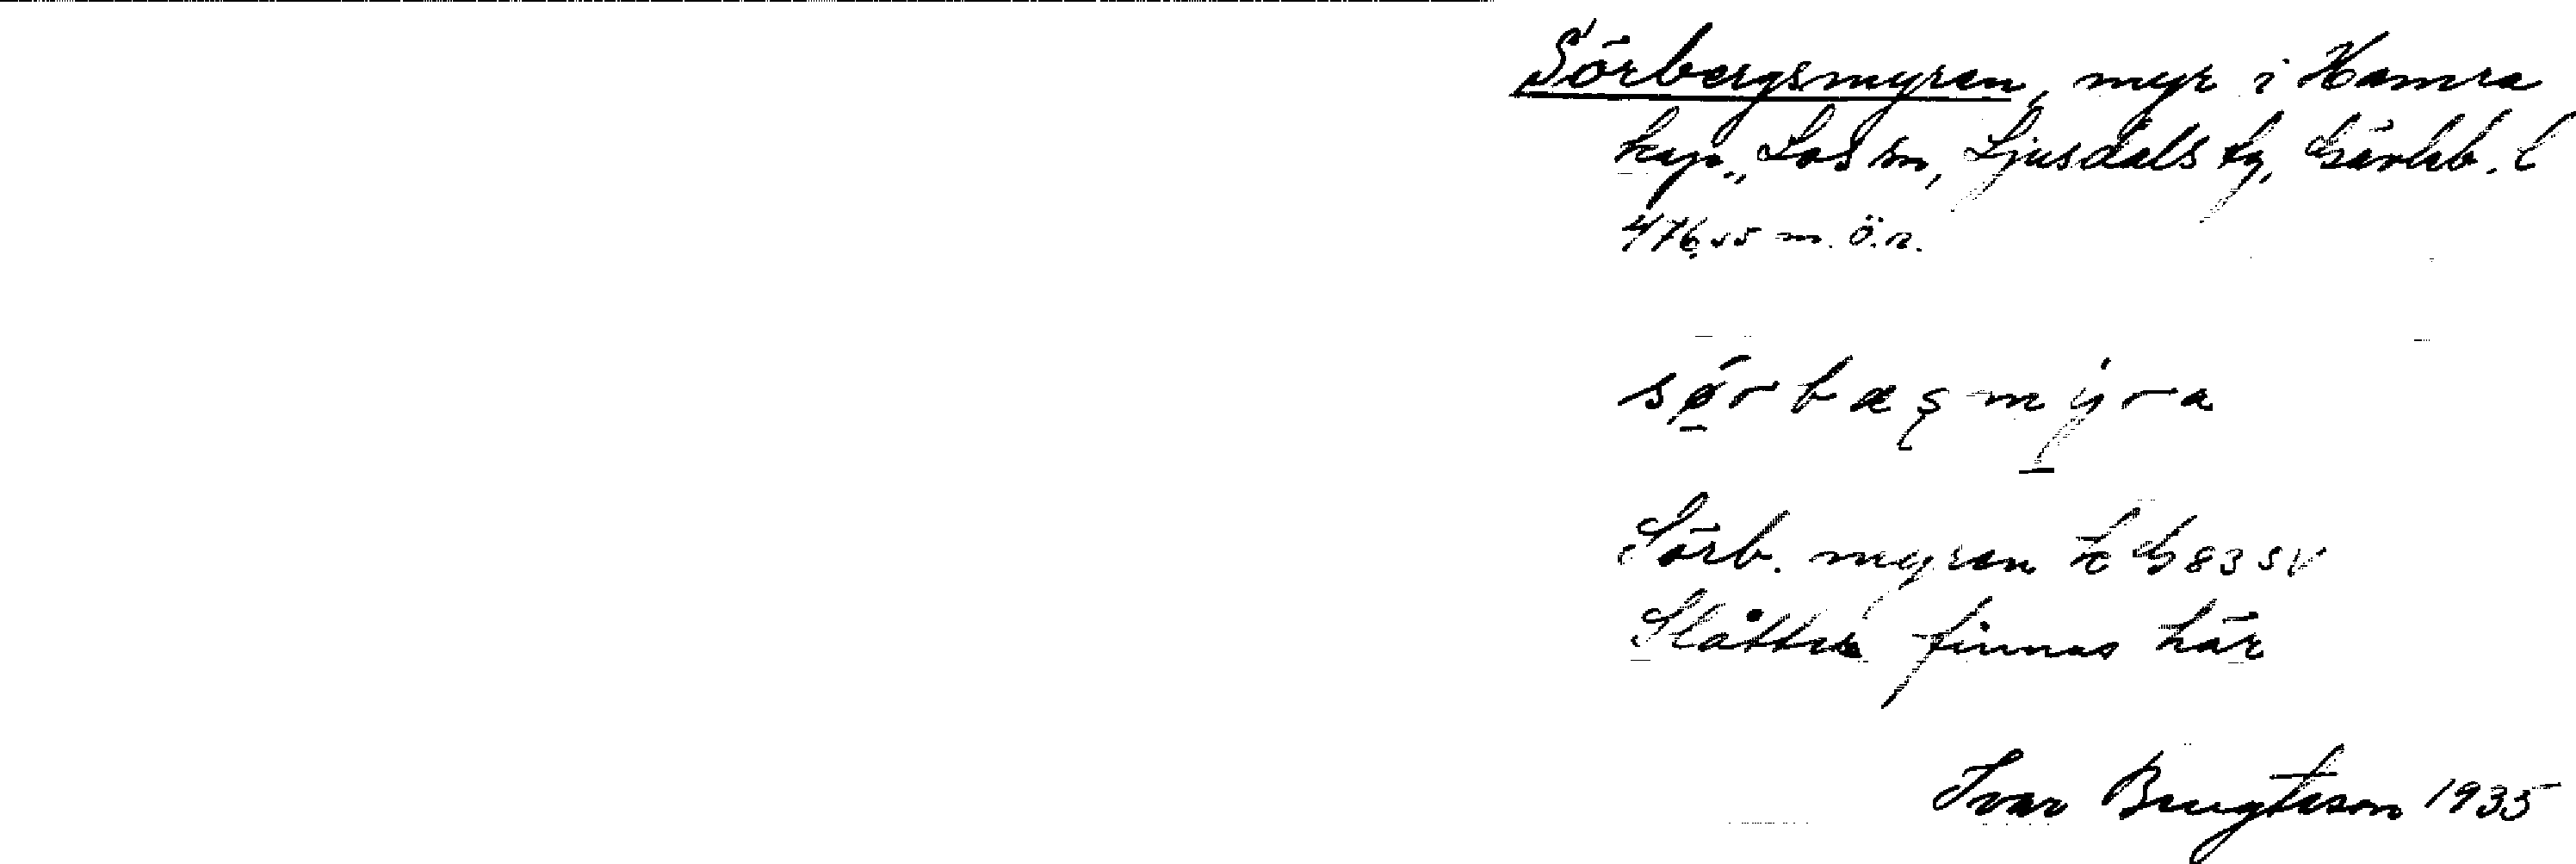 Sörbergsmyren, myr i Hamra
kap., Los sn, Ljusdals tg, Gävleb. l
476,55 m. ö. h.
sørbæşmýra
Sörb. myren LG 83 SV
Slåtter finnas här
Ivar Bengtsson 1935